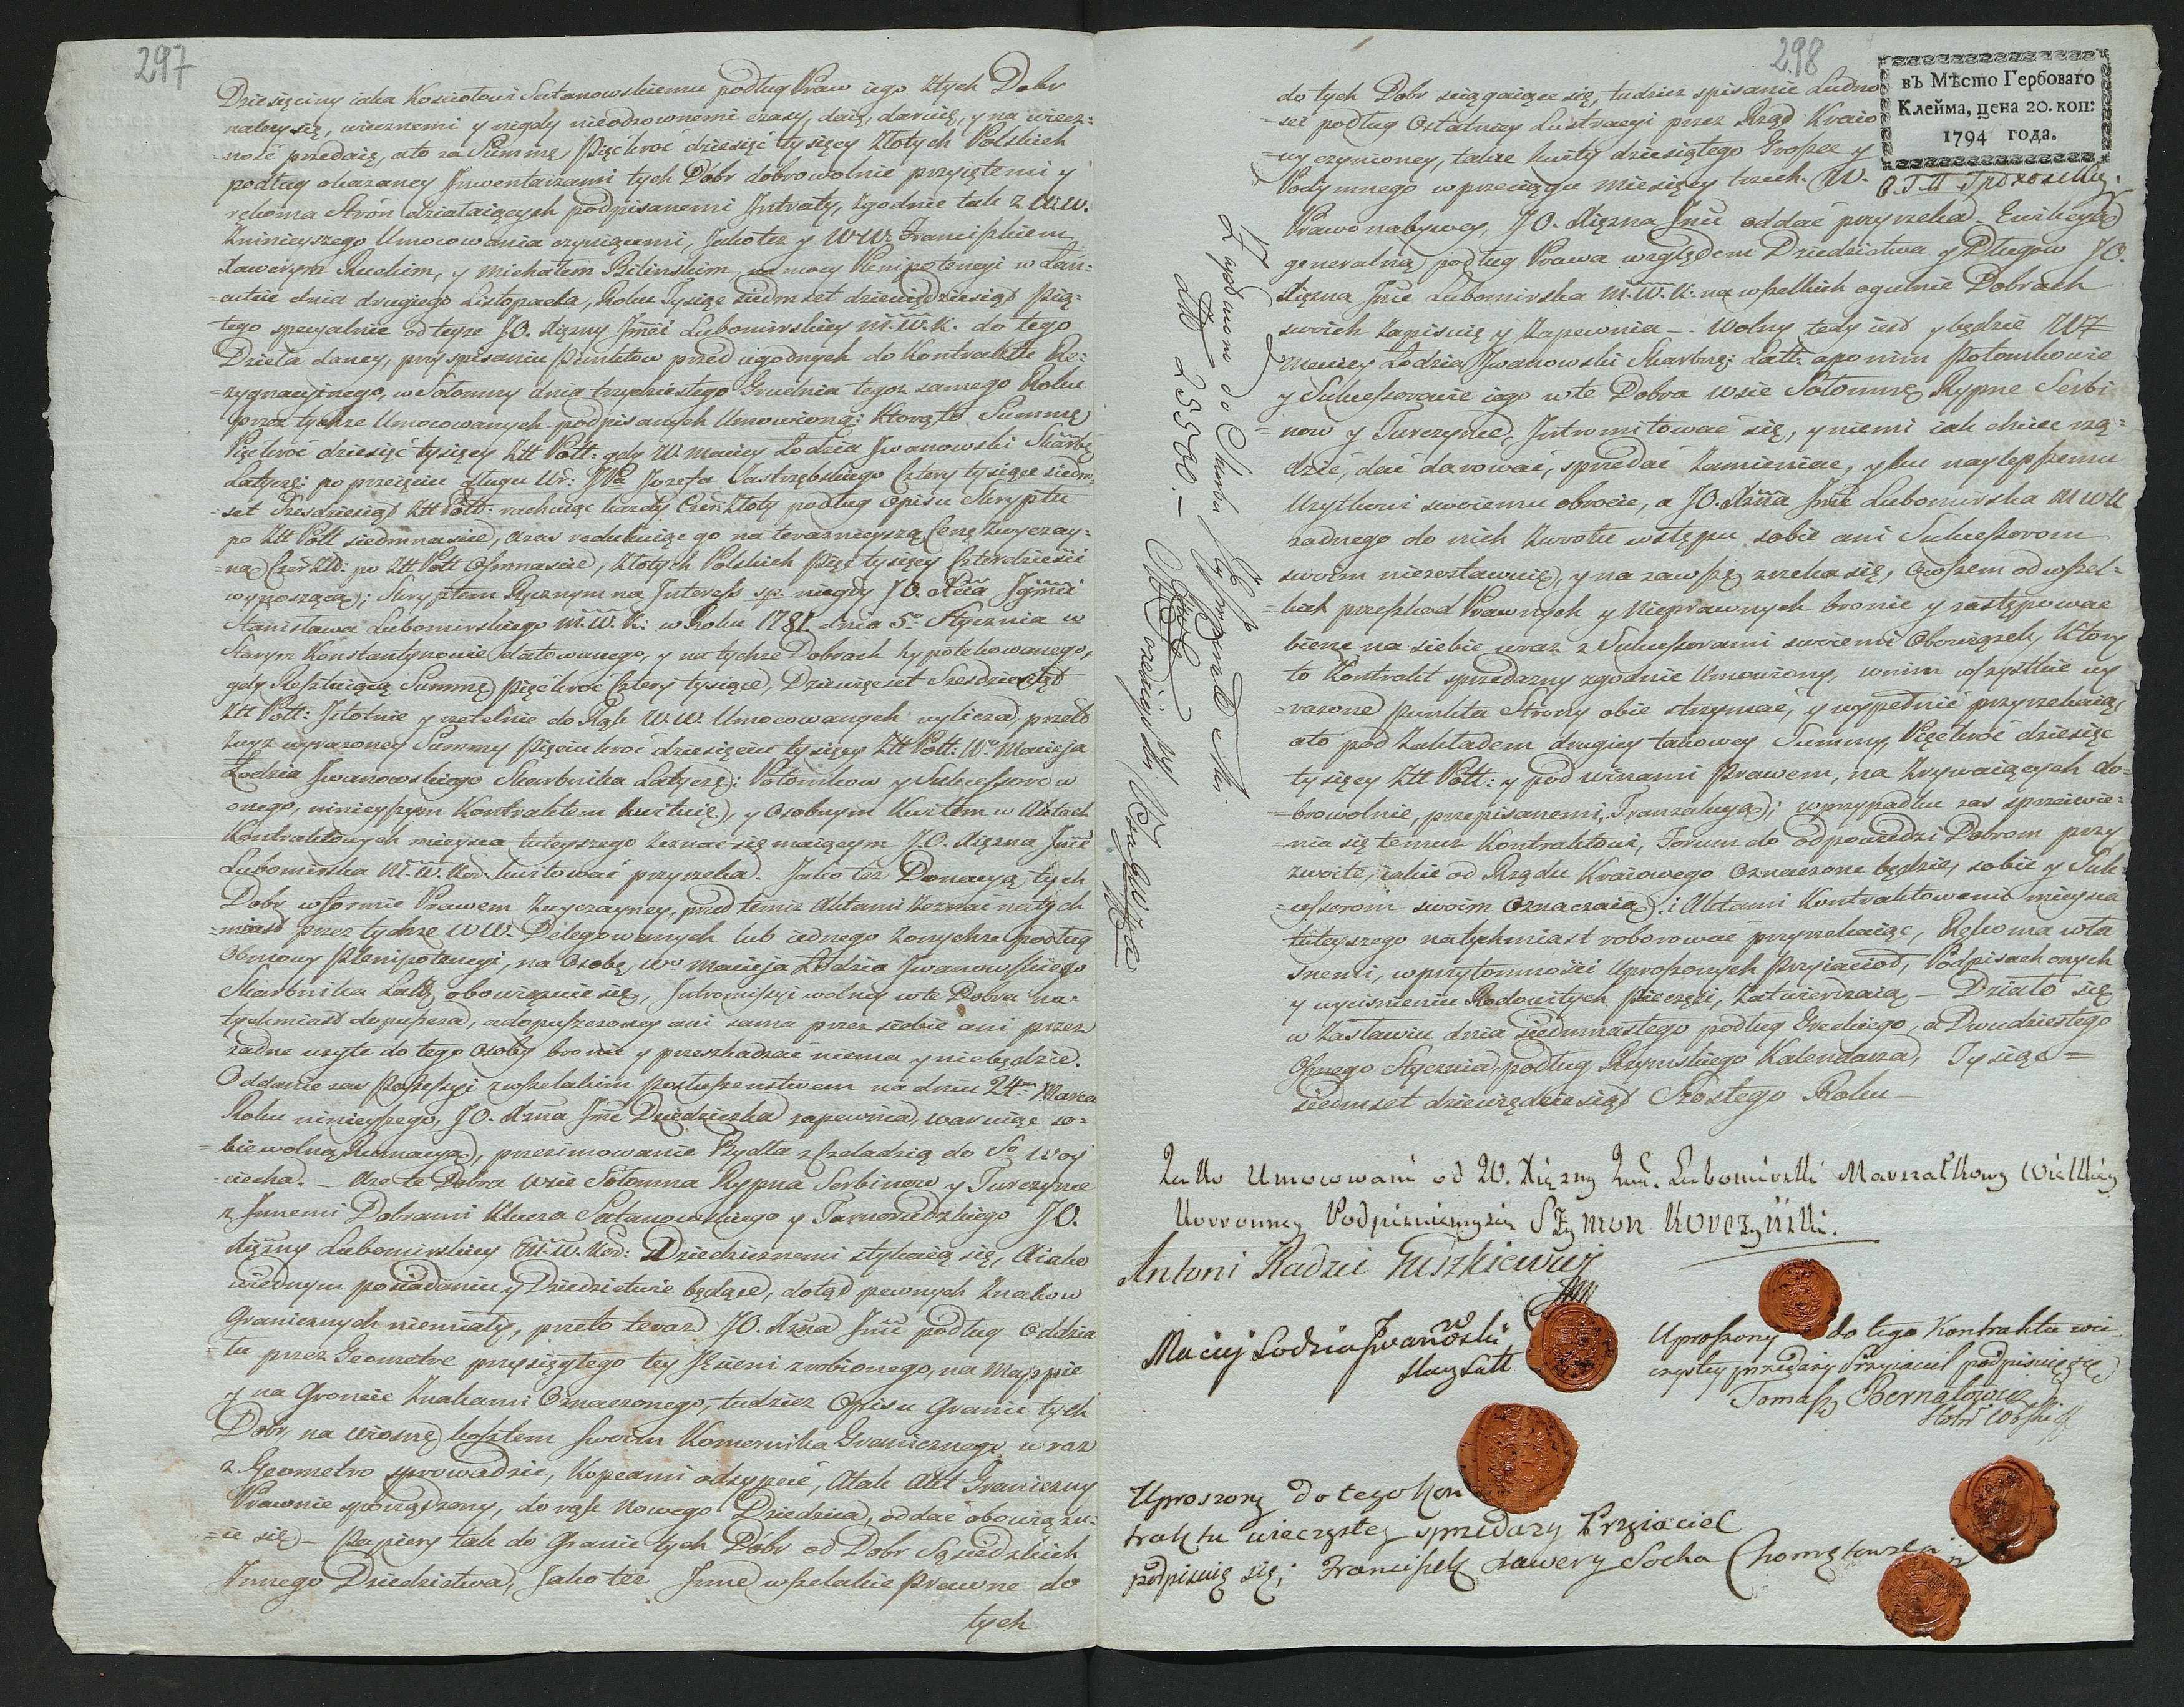 297
Dziesięciny iaka Kosciołowi Satanowskiemu podług Praw iego z tych Dobr
należy się, wiecznemi y nigdy nieodzownemi czasy, daią, daruią, y na wiecz=
=ność przedaią, ato za Summę Pięćkroć dziesięć tysięcy Złotych Polskich
podług okazaney Inwentarzami tych Dobr dobrowolnie przyiętemi y
rękoma Strón działaiących podpisanemi Intraty, zgodnie tak z W.W.
Zninieyszego Umocowania czyniącemi, Jako też y WW. Franciszkiem
Xawerym Ruckim, y Michałem Bilinskim, na mocy Plenipotencyi w Łań=
=cucie dnia drugiego Listopada, Roku Tysiąc siedmset dziewięćdziesiąt Pią=
tego specyalnie od teyże J.O. Xiężny Jmci Lubomirskiey M.W.K. do tego
Dzieła daney, przy spisaniu Punktow przed ugodnych do Kontraktu Re=
=zygnacyinego, w Sołomny dnia trzydziestego Grudnia tegoż samego Roku
przez tychże Umocowanych podpisanych Umowioną: Którą to Summę
Pięćkroć dziesięć tysięcy Złł Poll: gdy W. Maciey Łodzia Jwanowski Skarbę
Latycz: po przeięciu długu Ur: JPa Jozefa Jastrzębskiego Cztery tysiące siedm=
=set Szesdziesiąt Złł Poll: rachuiąc każdy Czer: Złoty podług Opisu Skryptu
po Złł Poll siedmnascie, a zas redukuiąc go na teraznieyszą Cenę zwyczay=
=ną Czer: Zło: po Złł Poll Osmnascie, Złotych Polskich Pięć tysięcy Czterdzieści
wynoszącą; Skryptem Ręcznym na Interess sp. niegdy J.O. Xcia Jgmci
Stanisława Lubomirskiego M.W.K: w Roku 1781 dnia 5o Stycznia w
Starym Konstantynowie datowanego, y na tychże Dobrach hypotekowanego,
gdy Resztuiącą Summę Pięćkroć Cztery tysiące, Dziewięćset Szesdziesiąt
Złł Poll: Istotnie y rzetelnie do Rąk W.W. Umocowanych wylicza, przeto
zwyż wyrażoney Summy Pięciukroć dziesięciu tysięcy Złł Poll: Wo Macieja
Łodzia Jwanowskiego Skarbnika Latyczę: Potomkow y Sukcessorow
onego, ninieyszym Kontraktem kwituie, y Osobnym Kwitem w Aktach
Kontraktowych mieysca tuteyszego zeznać się maiącym J.O. Xiężna Jmć
Lubomirska M.W.Kor: kwitować przyrzeka. Jako też Donacyą tych
Dobr w formie Prawem zwyczayney, przed temiż Aktami zeznać natych
=miast przez tychże WW. Delegowanych lub iednego z onychże podług
Osnowy Plenipotencyi, na Osobę Wo Macieja Łodzia Jwanowskiego
Skarbnika Latt obowiązuie się, Intromissyi wolney w te Dobra na=
tychmiast dopuszcza, a dopuszczoney ani sama przez siebie ani przez
żadne użyte do tego Osoby bronić y przeszkadzać niema y niebędzie.
Oddanie zas Possessyi z wszelakim posłuszenstwem na dniu 24m Marca
Roku ninieyszego, J.O. Xżna Jmć Dziedziczka zapewnia, waruiąc so=
=bie wolną Rumacyą, przezimowanie Bydła z Czeladzią do So Woy
=ciecha. — A że te Dobra Wsie Sołomna Rypna Serbinow y Turczynce
z Innemi Dobrami Klucza Satanowskiego y Tarnorudzkiego J.O.
Xiężny Lubomirskiey M.W.Kor: Dziedzicznemi stykaią się, a iako
wiednym posiadaniu y Dziedzictwie będące, dotąd pewnych Znakow
Granicznych niemiały, przeto teraz J.O. Xżna Jmć podług Oddzia
=łu przez Geometrę przysięgłego tey Jesieni zrobionego, na Mappie
y na Groncie Znakami Oznaczonego, tudzież Opisu Granic tych
Dobr, na wiosnę kosztem swoim Komornika Granicznego wraz
z Geometro sprowadzić, Kopcami odsypać, Atak Akt Graniczny
Prawnie sporządzony, do rąk nowego Dziedzica, oddać obowiązu=
=ie się — Papiery tak do Granic tych Dobr od Dobr Sąsiedzkich
Innego Dziedzictwa, Jako też Inne wszelakie Prawne do
tych
298
въ Мѣсто Гербоваго
Клейма, цена 20. коп:
1794 года.
do tych Dobr sciągaiące się, tudzież spisanie Ludno
=sci podług Ostatniey Lustracyi przez Rząd Kraio
=wy czynioney, także kwity dziesiątego Grosza y
Podymnego w przeciągu Miesięcy trzech. W.
Prawo nabywcy, J.O. Xiężna Jmć oddać przyrzeka. Ewikcyą
generalną podług Prawa względem Dziedzictwa y Długow J.O.
Xiężna Jmć Lubomirska M.W.K: na wszelkich ogulnie Dobrach
swoich zapisuię y zapewnia — Wolny tedy iest y będzie W
Maciey Łodzia Jwanowski Skarbnę: Latt: a po nim Potomkowie
y Sukcessorowie iego w te Dobra Wsie Sołomnę Rypnę Serbi
=now y Turczynce, Intromitować się, y niemi iak chcieć rzą=
dzić, dać darować, sprzedać zamieniać, y ku naylepszemu
Użytkowi swoiemu obrocić, a J.O. Xżna Jmć Lubomirska M W K
żadnego do nich zwrotu wstępu sobie ani Sukcessorom
swoim niezostawuie, y na zawsze zrzeka się, Owszem od wszel=
=kich przeszkod Prawnych y nieprawnych bronić y zastępować
bierze na siebie wraz z Sukcessorami swoiemi Obowiązek, Ktory
to Kontrakt sprzedażny zgodnie Umowiony, w nim wszystkie wy
=rażone Punkta Strony obie strzymać, y wypełnić przyrzekaią
ato pod Zakładem drugiey takowey Summy, Pięćkroć dziesięć
tysięcy Złł Poll: y pod winami Prawem, na Zrywaiących do=
=browolnie, przepisanemi, Tranzakcyą; w przypadku zas sprzeciwie=
=nia się temuż Kontraktowi, Forum do odpowiedzi Dobrom przy
zwoite, iakie od Rządu Kraiowego Oznaczone będzie, sobie y Suk=
=cessorom swoim Oznaczaią: i Aktami Kontraktowemi mieysca
tuteyszego natychmiast roborować przyrzekaiąc, Rękoma wła
snemi, w przytomności Uproszonych Przyiacioł, Podpisach onych
y wyciśnieniu Rodowitych Pieczęci, Zatwierdzaią — Działo się
w Zasławiu dnia Siedmnastego podług Greckiego, a Dwudziestego
Osmego Stycznia podług Rzymskiego Kalendarza, Tysiąc=
siedmset dziewięćdziesiąt Szostego Roku —
Jako Umocowani od W. Xiężny Jmć. Lubomirski Marszałkowy Wielkiey
Korronney Podpisuiemy się Szymon Korczyński.
Antoni Radzic Fuszkiewicz
Maciej Łodzia Jwanowski
Skarz Latt
Uproszony do tego Kontraktu wie
czystey przedaży Przyiaciel podpisuię się
Tomasz Bernatowicz
Uproszony do tego Kon
traktu wieczystey sprzedaży Przyiaciel
podpisuię się; Franciszek Xawery Socha Chomętowski